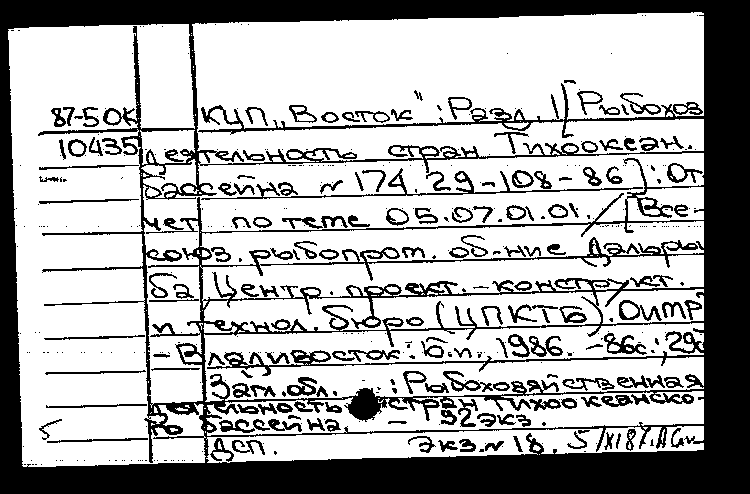 87-5 ОК КЦП „Восток" : Разд. 1 [Рыбохоз
10435 деятельность стран Тихоокеан.
бассейна № 174.29-108-86] : От-
чет по теме 05.07.01.01. / [Все-
союз. рыбопром. об-ние Дальры
ба Центр. проект.-конструкт.
и технол. бюро (ЦПКТБ).
- Владивосток : Б.и., 1986. - 86с.; 29
Загл. обл. : Рыбохозяйственная
деятельность стран Тихоокеанско-
го бассейна. - 92 экз.
5 ДСП. Экз. № 18. 5/XI 87.